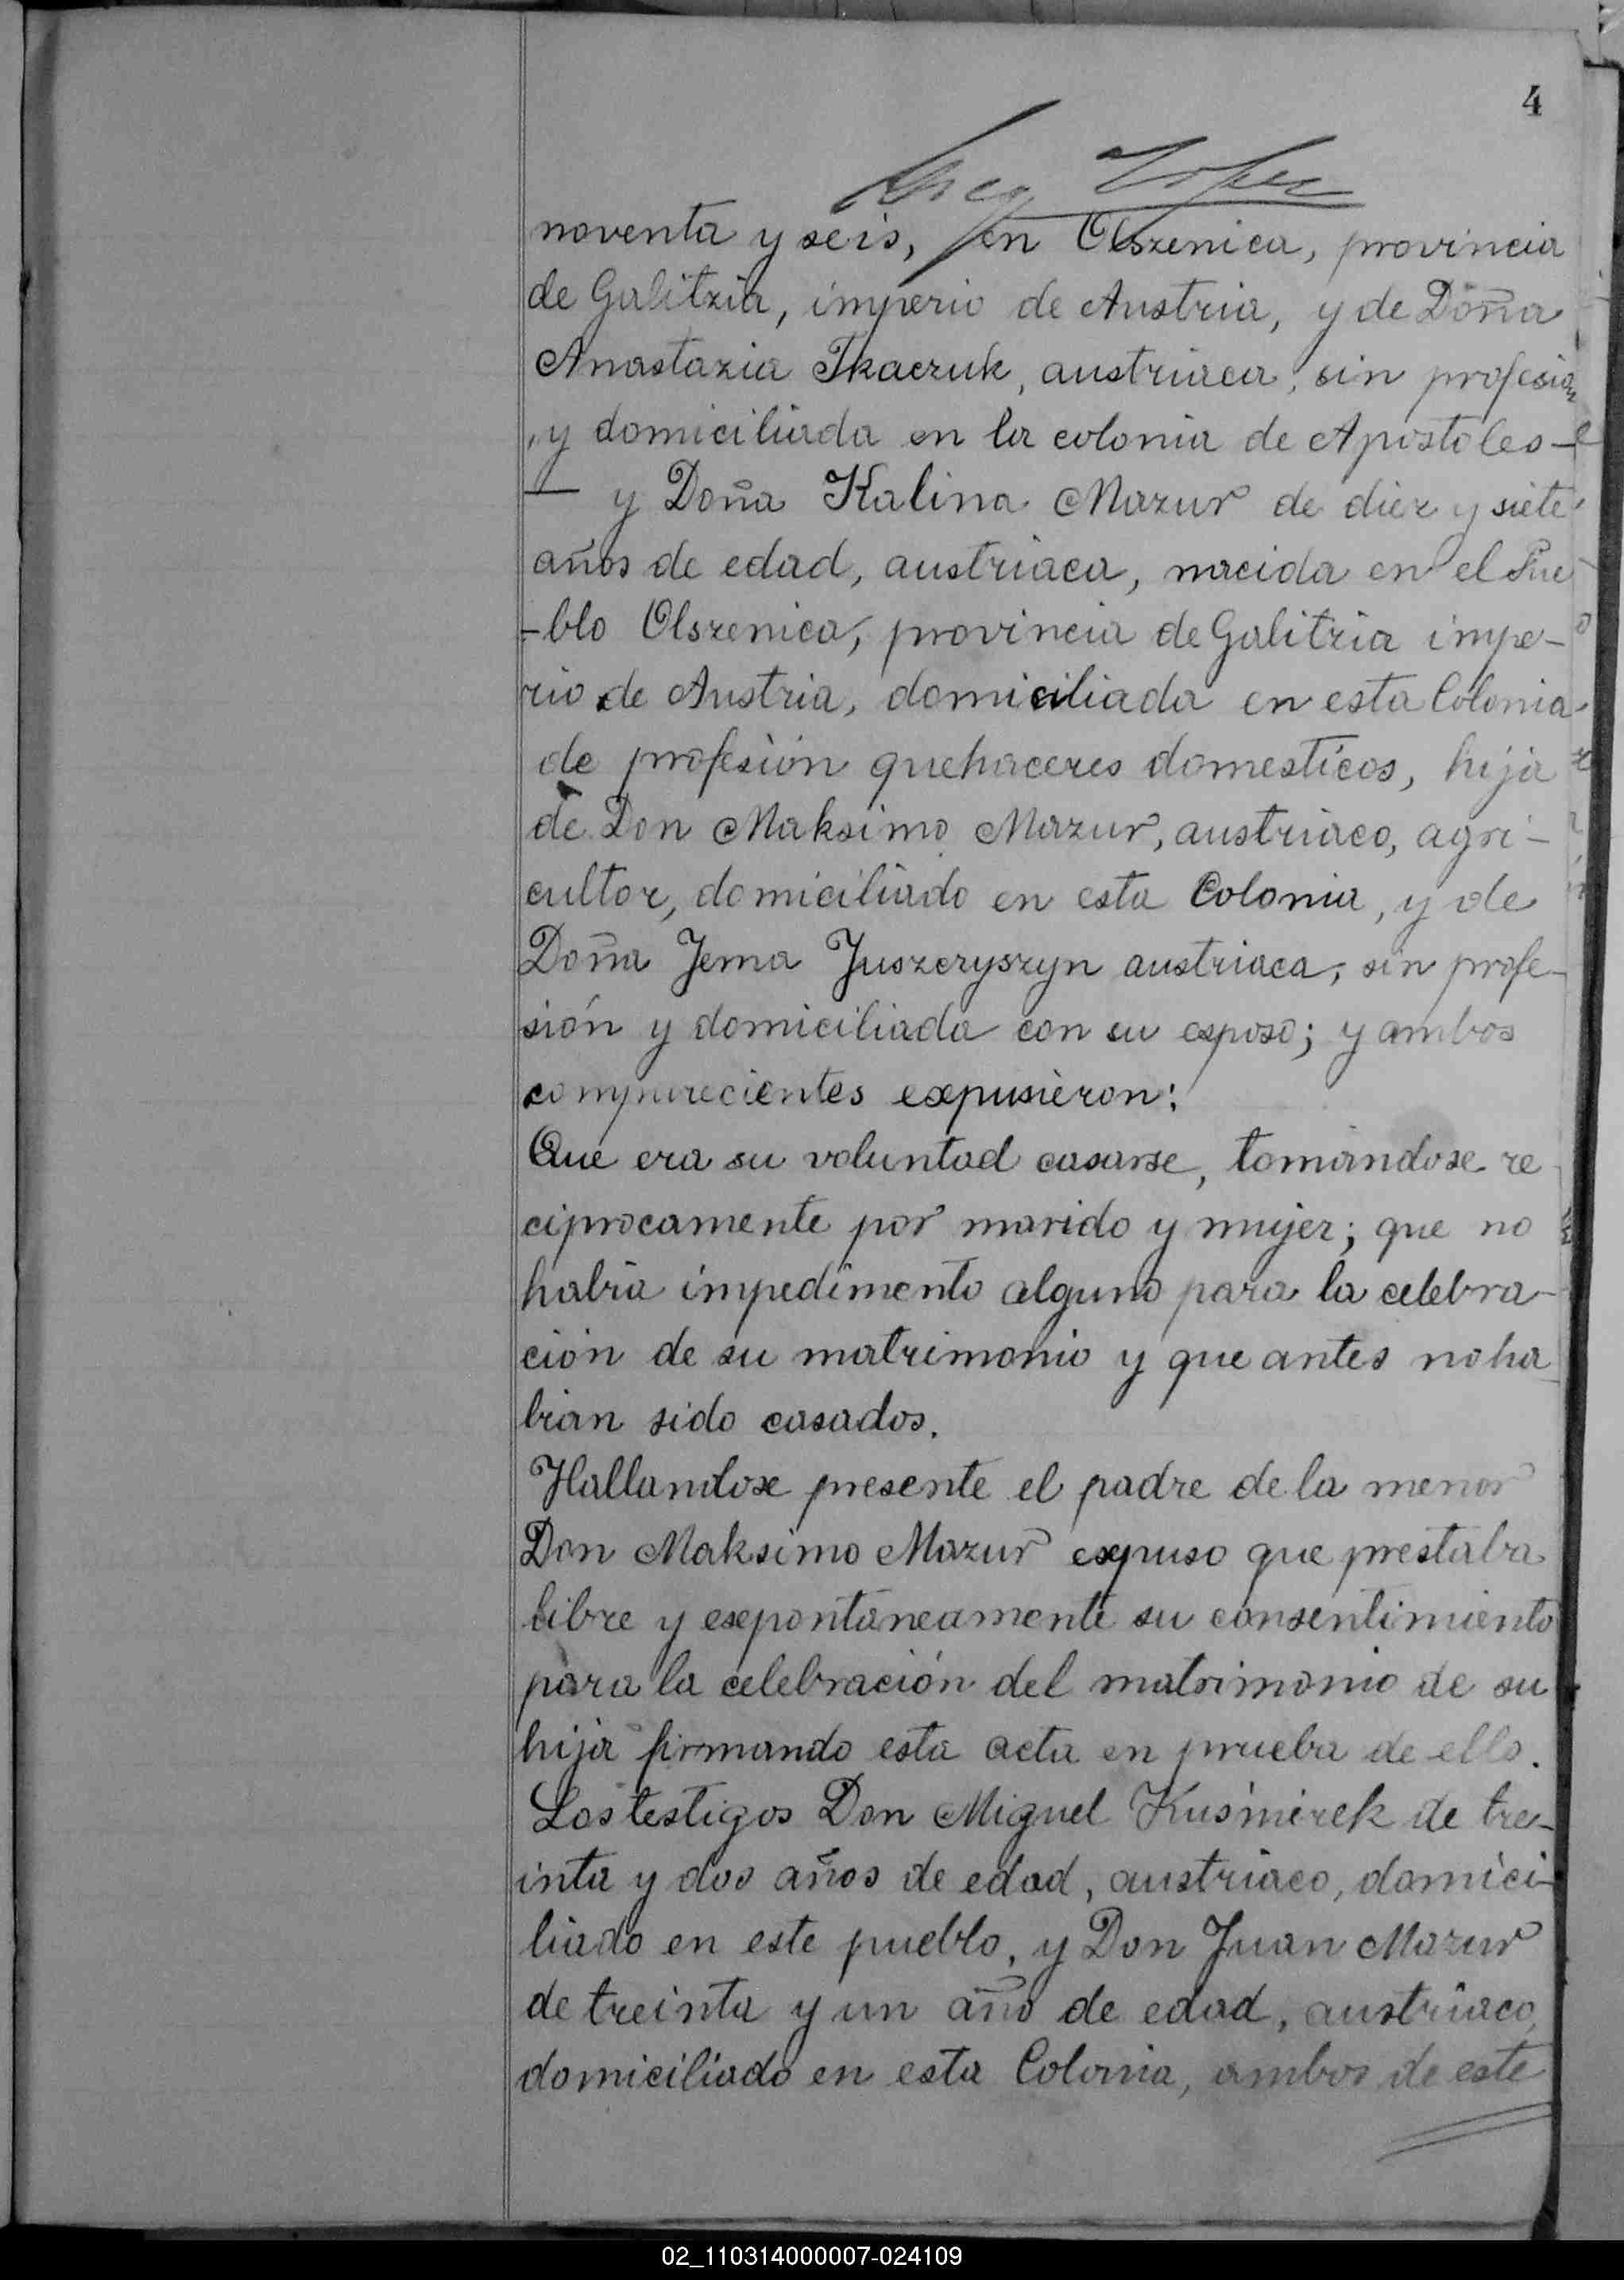 4
noventa y seis, en Olszenica, provincia
de Galitzia, imperio de Austria, y de Doña
Anastazia Tkaczuk, austriaca, sin profesion
, y domiciliada en la colonia de Apostoles —
— y Doña Kalina Mazur de diez y siete
años de edad, austriaca, nacida en el Pue
-blo Olszenica, provincia de Galitzia impe-
rio de Austria, domiciliada en esta Colonia
de profesión quehaceres domesticos, hija
de Don Maksimo Mazur, austriaco, agri-
cultor, domiciliado en esta Colonia, y de
Doña Jema Juszczyszyn austriaca, sin profe-
sión y domiciliada con su esposo; y ambos
comparecientes expusieron:
Que era su voluntad casarse, tomándose re
ciprocamente por marido y mujer; que no
habia impedimento alguno para la celebra-
ción de su matrimonio y que antes no ha
bian sido casados.
Hallandose presente el padre de la menor
Don Maksimo Mazur expuso que prestaba
libre y expontáneamente su consentimiento
para la celebración del matrimonio de su
hija firmando esta acta en prueba de ello.
Los testigos Don Miguel Kuśmirek de tre-
inta y dos años de edad, austriaco, domici-
liado en este pueblo, y Don Juan Mazur
de treinta y un año de edad, austriaco,
domiciliado en esta Colonia, ambos de este
02_110314000007-024109